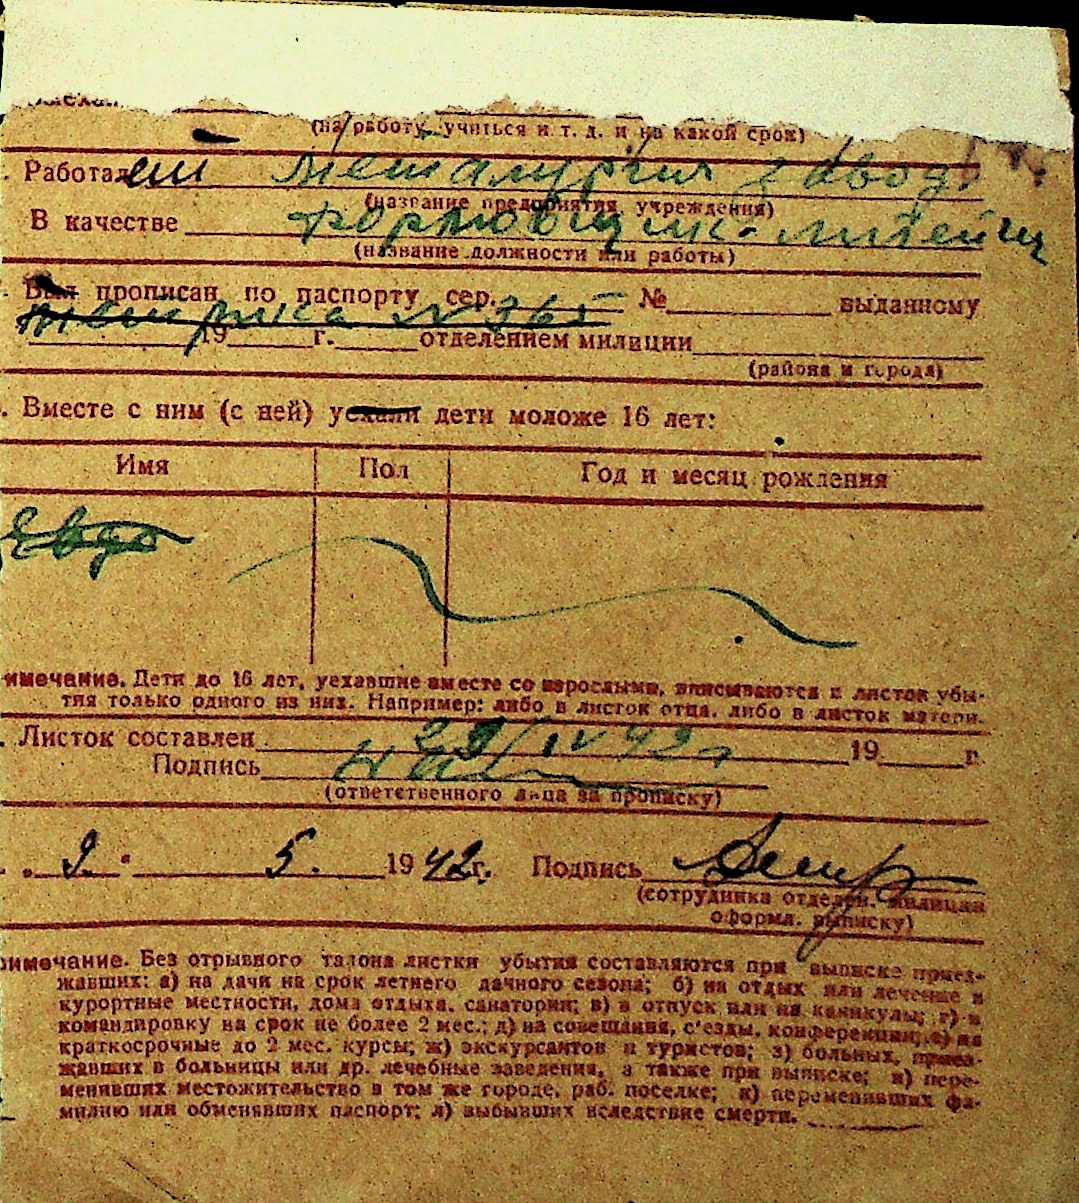 (на работу, учиться и т. д. и на какой срок)
Работает Металургич завод.
(название предприятия, учреждения)
В качестве формовщик-литейщ
(название должности или работы)
Был прописан по паспорту сер. № выданному
метрика № 365
19 г. отделением милиции
(района и города)
Вместе с ним (с ней) уехали дети моложе 16 лет:
Имя Пол Год и месяц рождения
Евдо
имечание. Дети до 16 лет, уехавшие вместе со взрослыми, вписываются в листок убы-
тия только одного из них. Например: либо в листок отца, либо в листок матери.
Листок составлен 29/IV 42 г 19 г.
Подпись
(ответственного лица за прописку)
„ 9 " 5. 1942 г. Подпись
(сотрудника отделен. милиции
оформл. выписку)
римечание. Без отрывного талона листки убытия составляются при выписке приез-
жавших: а) на дачи на срок летнего дачного сезона; б) на отдых или лечение в
курортные местности, дома отдыха, санатории; в) в отпуск или на каникулы; г) в
командировку на срок не более 2 мес.; д) на совещания, с'езды, конференции; е) на
краткосрочные до 2 мес. курсы; ж) экскурсантов и туристов; з) больных, приез-
жавших в больницы или др. лечебные заведения, а также при выписке; и) пере-
менивших местожительство в том же городе, раб. поселке; к) переменивших фа-
милию или обменявших паспорт; л) выбывших вследствие смерти.